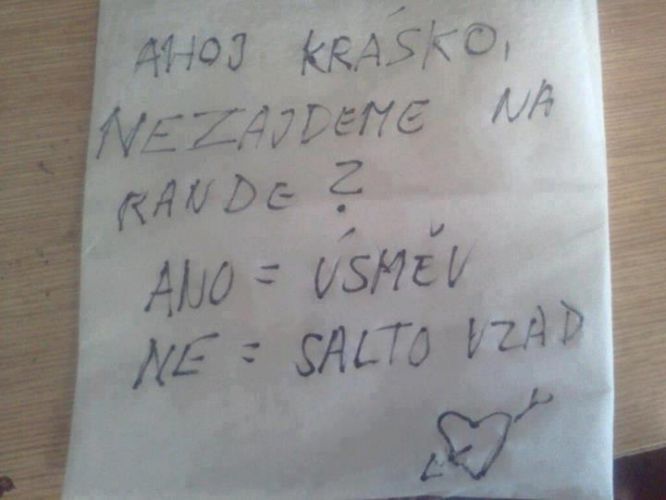 AHOJ KRÁSKO,
NEZAJDEME NA
RANDE?
ANO = ÚSMĚV
NE = SALTO VZAD